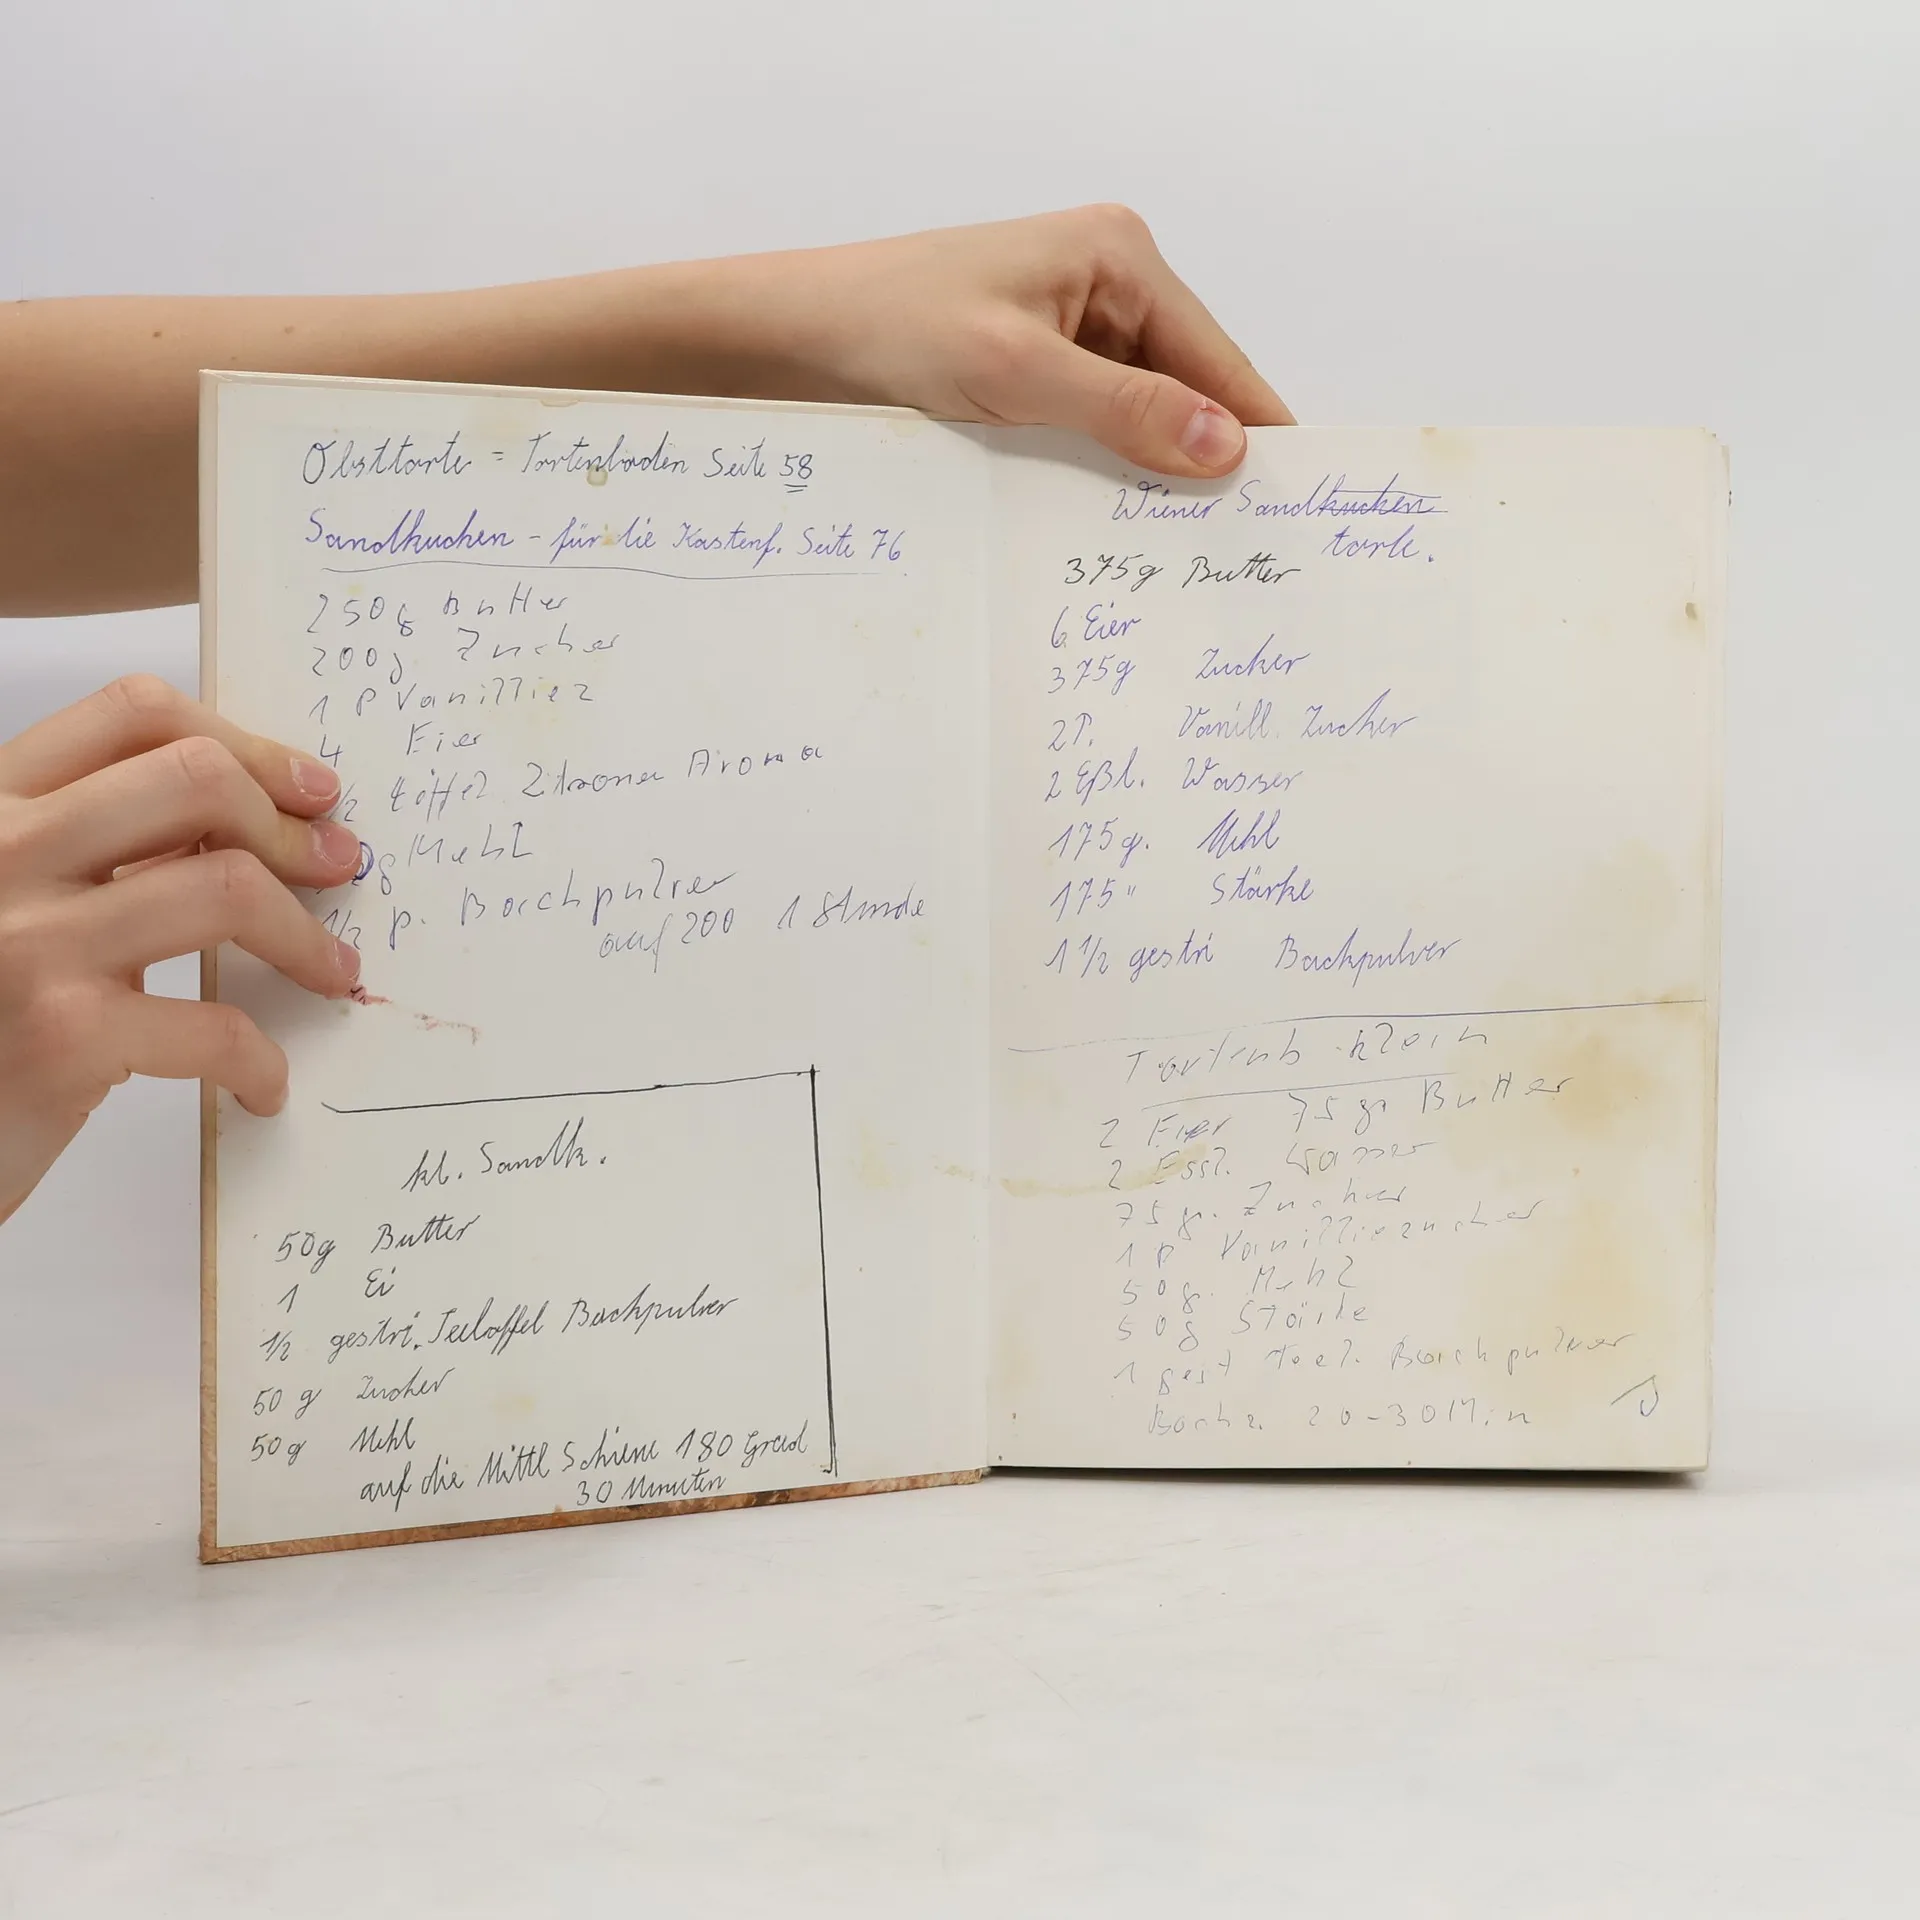 Obsttorte = Tortenboden Seite 58
Sandkuchen - für die Kastenf. Seite 76
250g Butter
200g Zucker
1 P Vanilliez
4 Eier
1/2 Löffel Zitronen Aroma
g Mehl
1/2 p. Backpulver
auf 200 1 Stunde
kl. Sandk.
50g Butter
1 Ei
1/2 gestri. Teelöffel Backpulver
50 g Zucker
50 g Mehl
auf die Mittl Schiene 180 Grad
30 Minuten
Wiener Sandkuchen
torte.
375g Butter
6 Eier
375g Zucker
2P. Vanill. Zucker
2 Eßl. Wasser
175g. Mehl
175 " Stärke
1 1/2 gestri Backpulver
Tortenb klein
2 Eier 75 gr Butter
2 Essl. Wasser
75 gr. Zucker
1 P Vanilliezucker
50 g. Mehl
50 g Stärke
1 gest Teel. Backpulver
Backz. 20-30 Min